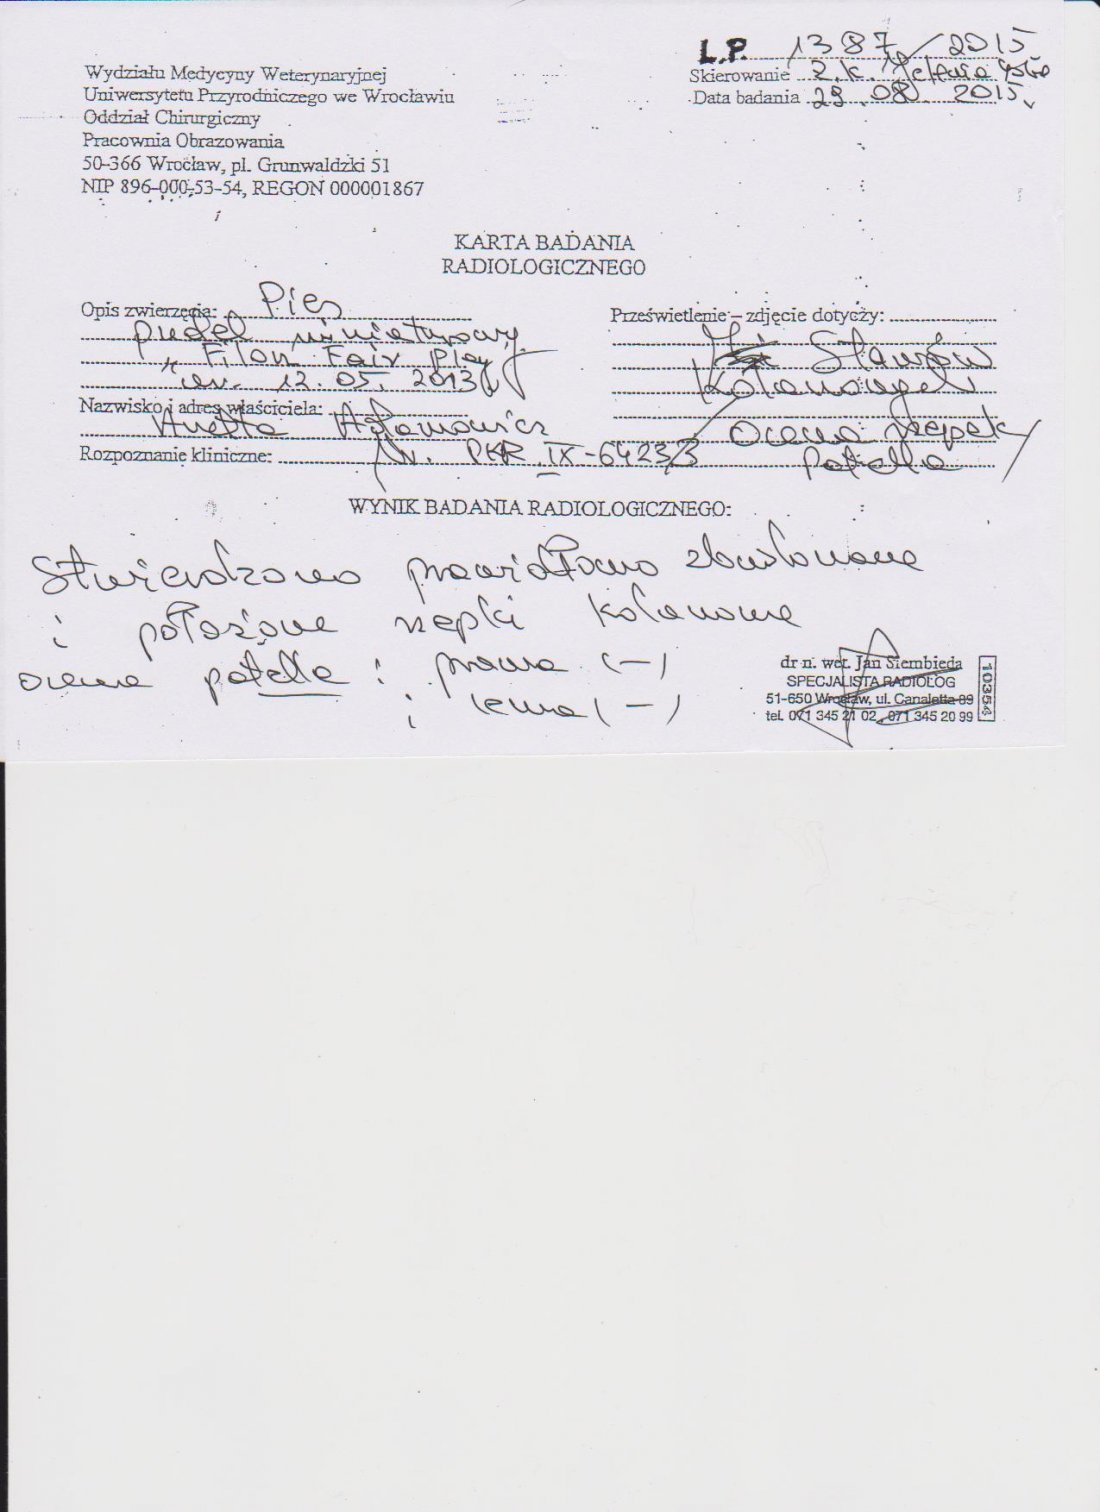 L.P. 1387/2015
Wydziału Medycyny Weterynaryjnej
Skierowanie Z.K.
Uniwersytetu Przyrodniczego we Wrocławiu
Data badania 29.08.2015
Oddział Chirurgiczny
Pracownia Obrazowania
50-366 Wrocław, pl. Grunwaldzki 51
NIP 896-000-53-54, REGON 000001867
KARTA BADANIA
RADIOLOGICZNEGO
Opis zwierzęcia: Pies
pudel miniaturowy
"Filon Fair Play"
ur. 12.05.2013
Nazwisko i adres właściciela:
Anetta Adamowicz
Rozpoznanie kliniczne: Nr. PKR IX-6423
Prześwietlenie – zdjęcie dotyczy:
Stawów
Kolanowych
Ocena rzepek
patella
WYNIK BADANIA RADIOLOGICZNEGO:
Stwierdzono prawidłowo zbudowane
i położone rzepki kolanowe
ocena patella : prawa (-)
i lewa (-)
dr n. wet. Jan Siembieda
SPECJALISTA RADIOLOG
51-650 Wrocław, ul. Canaletta 89
tel. 071 345 21 02, 071 345 20 99
10354